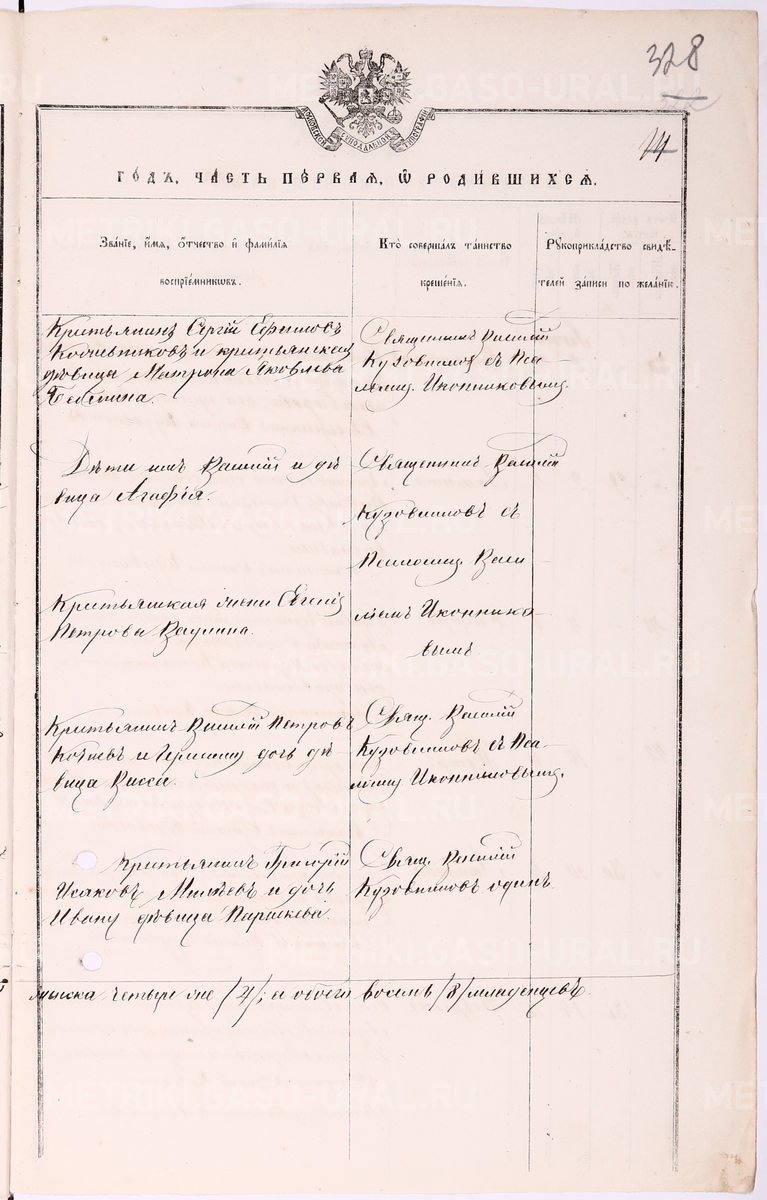 328
14
МОСКОВСКОЙ СѴНОДАЛЬНОЙ ТИПОГРАФІИ
ГО́ДЪ, ЧА́СТЬ ПЕ́РВАЯ, Ѡ҆ РОДИ́ВШИХСЯ.
Зва́нїе, и҆́мя, ѻ҆́тчество и҆ фами́лїя
воспрїе́мниковъ.
Кто̀ соверша́лъ та́инство
креще́нїя.
Рꙋкоприкла́дство свидѣ́-
телей за́писи по жела́нїю.
Крестьянинъ Сергій Ефимовъ
и крестьянская
дѣвица Матрона Яковлева
Священникъ Василій
Кузовниковъ съ Пса-
ломщ. Иконниковымъ.
Дѣти ихъ Василій и дѣ-
вица Агафія.
Священникъ Василій
Кузовниковъ съ
Псаломщ. Васи-
ліемъ Иконнико-
вымъ
Крестьянская жена Евгенія
Петрова Ваулина.
Крестьянинъ Василій Петровъ
и дочь дѣ-
вица Васса.
Свящ. Василій
Кузовниковъ съ Пса-
ломщ. Иконниковымъ.
Крестьянинъ Григорій
Исаковъ и дочь
Ивану дѣвица Параскева.
Свящ. Василій
Кузовниковъ одинъ.
женска четыре же /4/; а обоего восемь /8/ младенцевъ.
METRIKI.GASO-URAL.RU